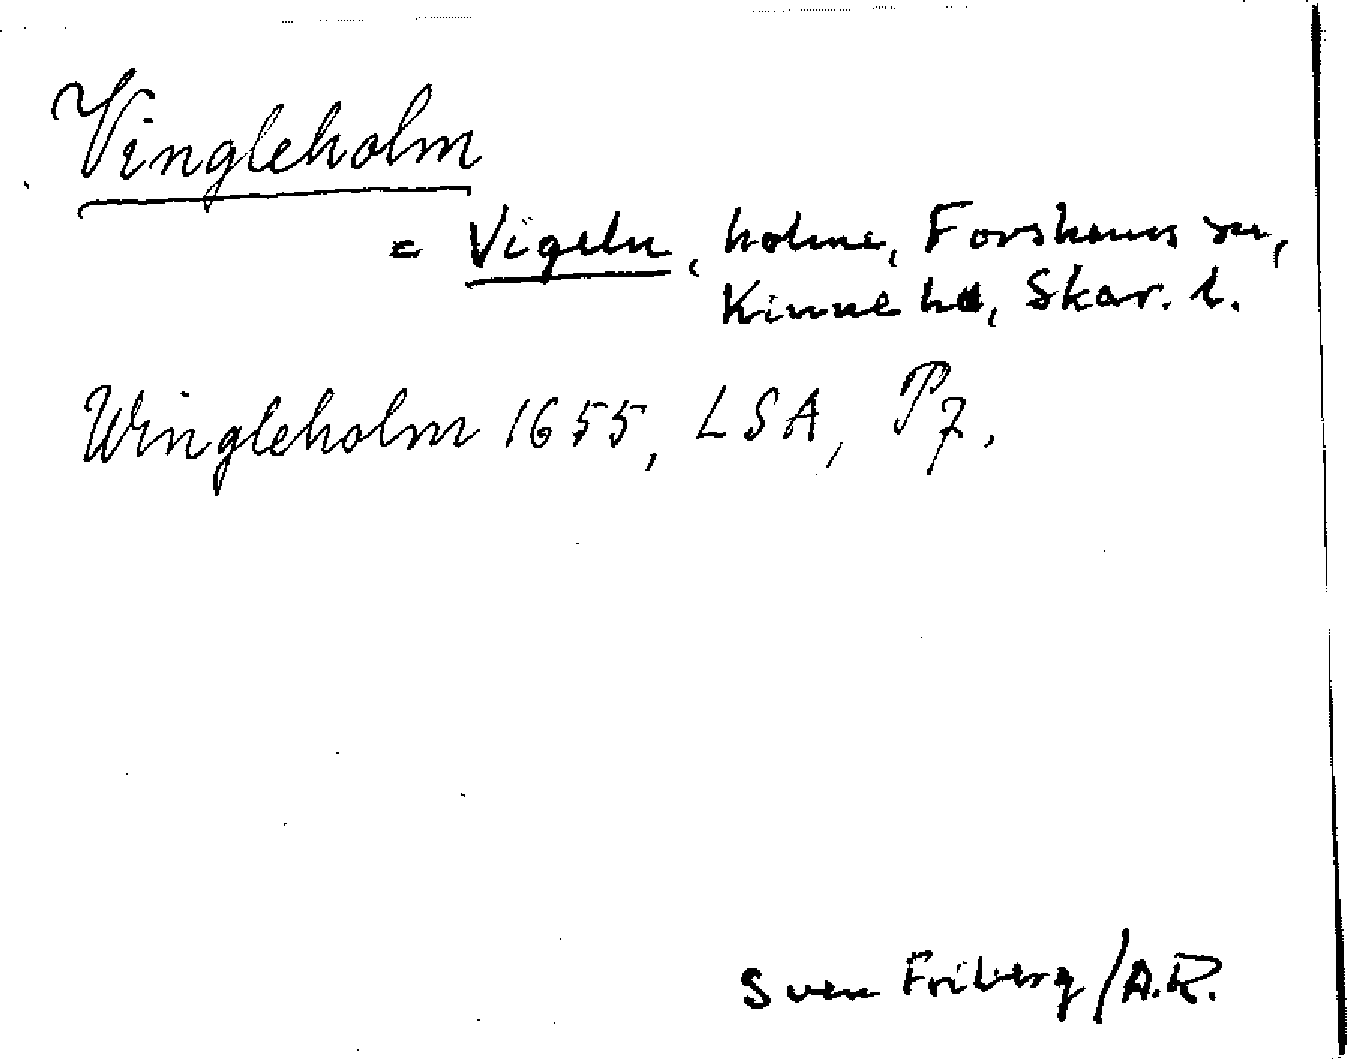 Vingleholm
= Vigeln, holme, Forshems sn,
Kinne hd, Skar. l.
Wingleholm 1655, LSA, P7.
Sven Friberg/A.R.